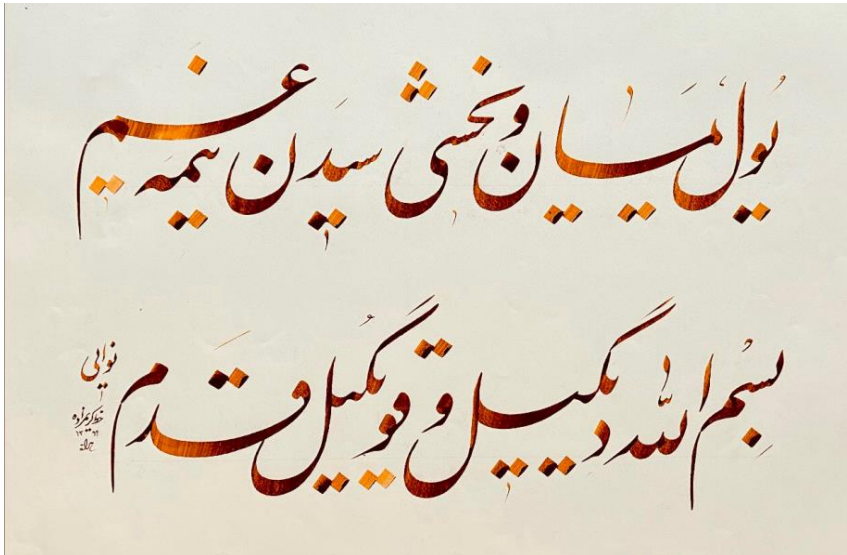 یول یمان و یخشی سیدن ییمه غیم
بسم الله دیگیل و قویگیل قدم
نوایی
خط کریم زاده